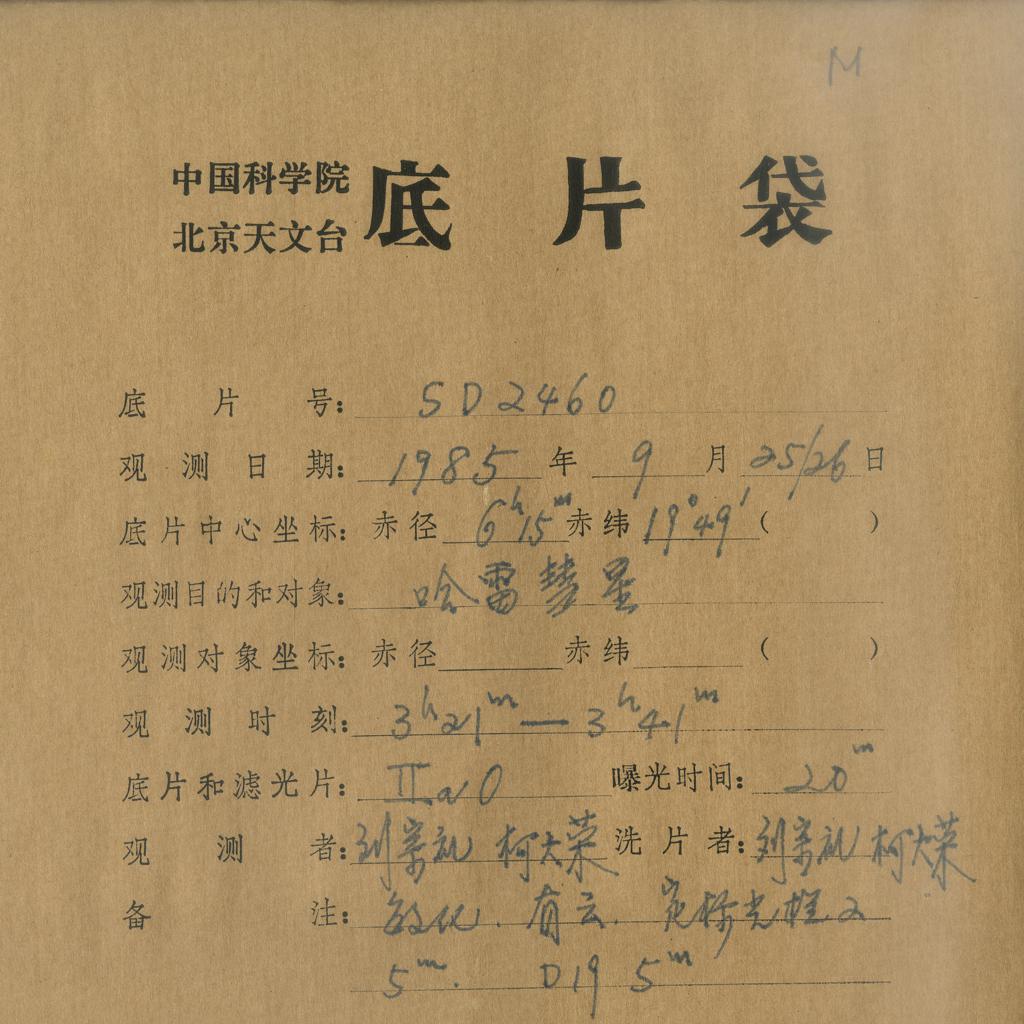 M
中国科学院
北京天文台
底片袋
底片号: SD2460
观测日期: 1985年 9月 25/26日
底片中心坐标: 赤径 6h15m 赤纬 19°49′ ( )
观测目的和对象: 哈雷彗星
观测对象坐标: 赤径 赤纬 ( )
观测时刻: 3h21m — 3h41m
底片和滤光片: IIaO 曝光时间: 20m
观测者: 刘宗礼 柯大荣 洗片者: 刘宗礼 柯大荣
备注: 敏化. 有云. 定标光楔2
5m. D19 5m